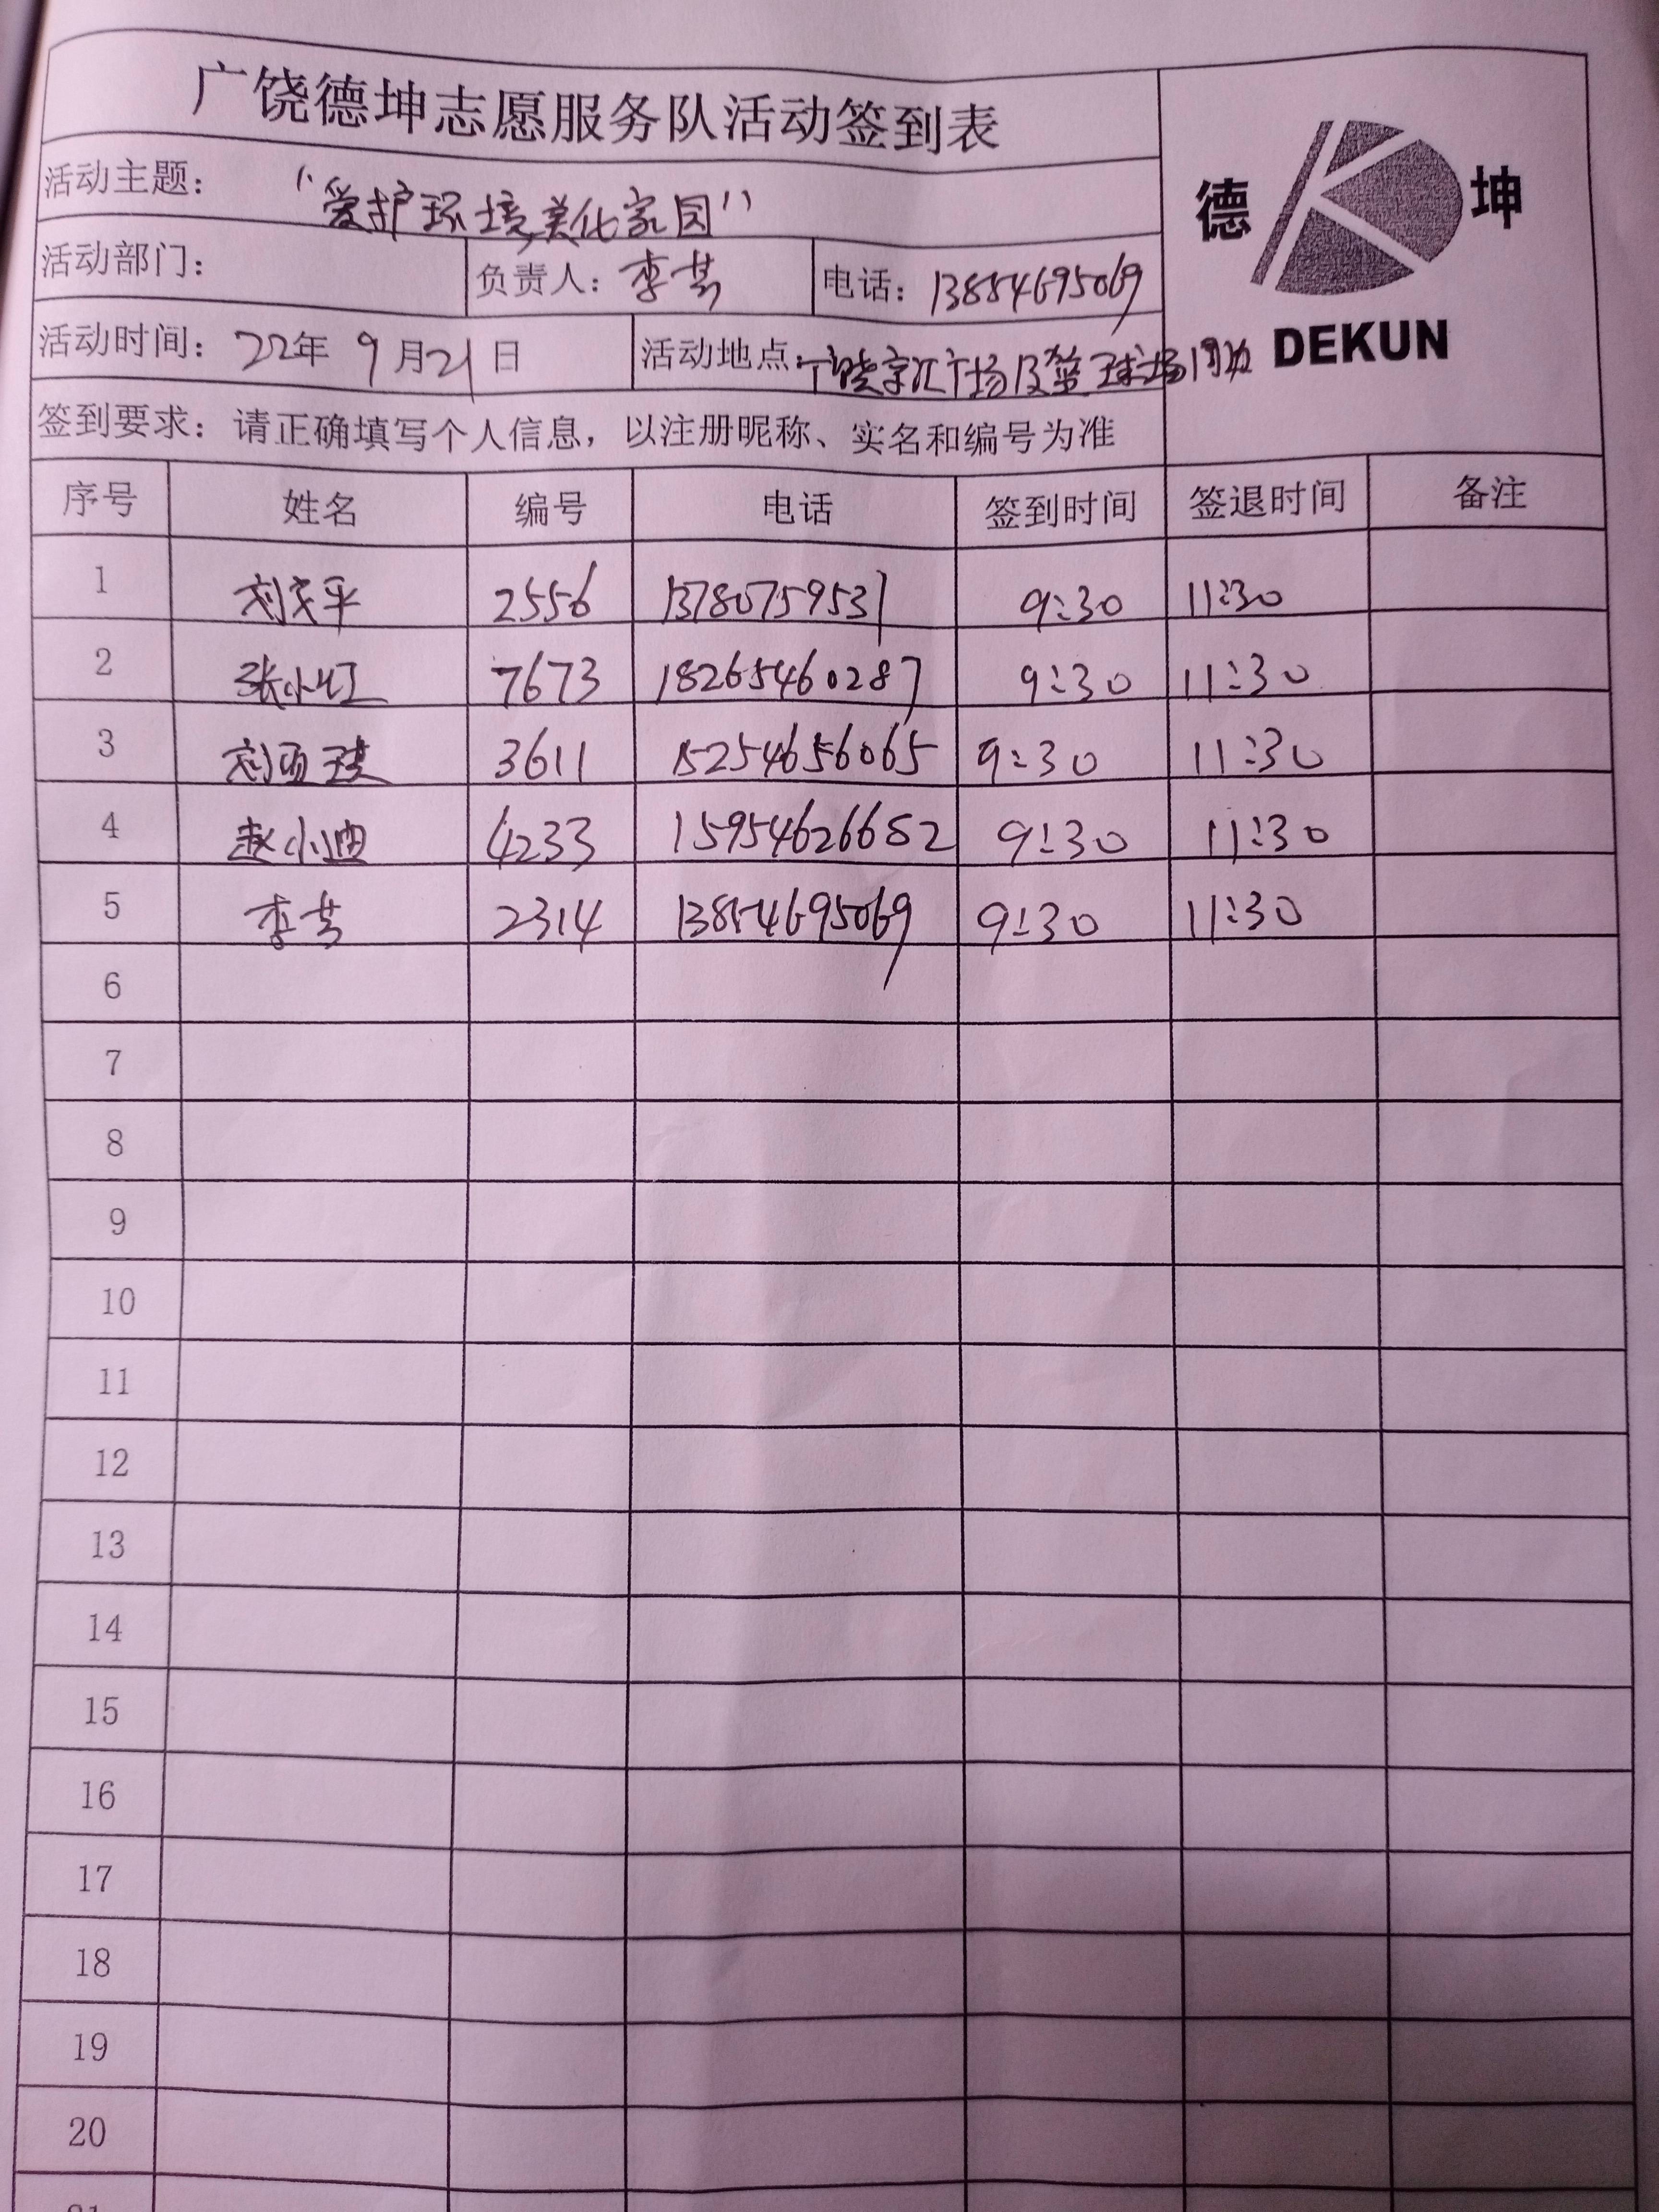 广饶德坤志愿服务队活动签到表
德 坤
DEKUN
活动主题: “爱护环境,美化家园”
活动部门: 负责人: 李芸 电话: 13854695069
活动时间: 22年 9月21日 活动地点: 广饶京汇广场及篮球场周边
签到要求: 请正确填写个人信息, 以注册昵称、实名和编号为准
序号 姓名 编号 电话 签到时间 签退时间 备注
1 刘平 2556 13780759531 9:30 11:30
2 张小红 7673 18265460287 9:30 11:30
3 刘亚琪 3611 15254656065 9:30 11:30
4 赵小迪 4233 15954626652 9:30 11:30
5 李芸 2314 13854695069 9:30 11:30
6
7
8
9
10
11
12
13
14
15
16
17
18
19
20
21